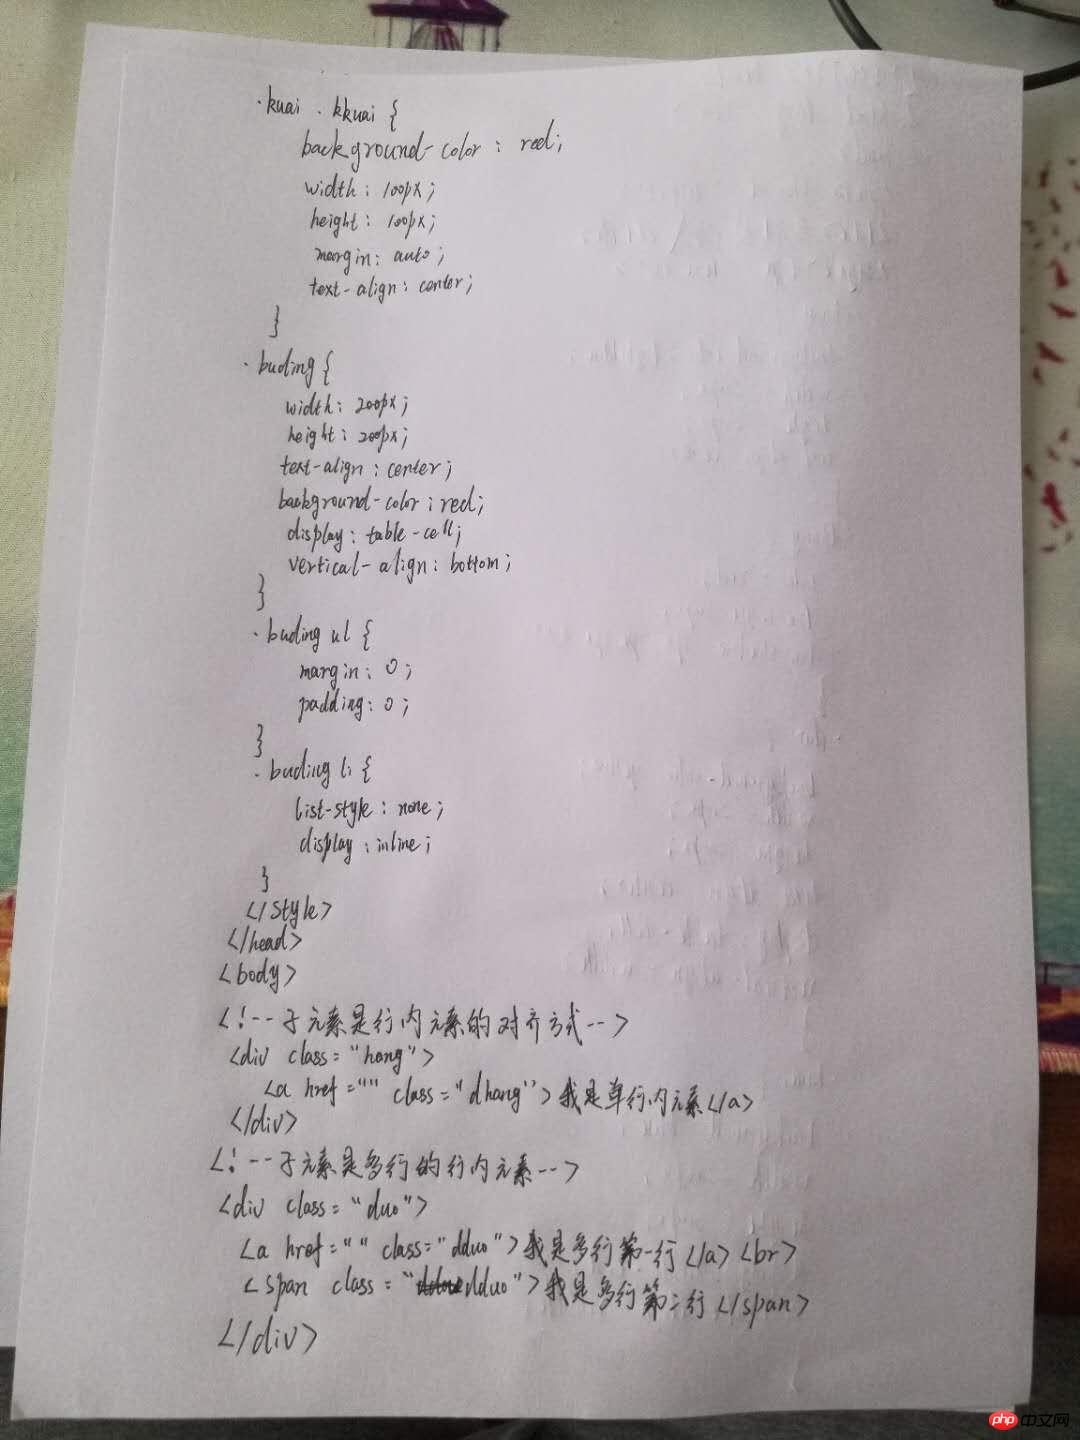 .kuai .kkuai {
background-color : red;
width : 100px;
height : 100px;
margin: auto;
text-align : center;
}
.buding {
width : 200px;
height : 200px;
text-align : center;
background-color : red;
display : table-cell;
vertical-align : bottom;
}
.buding ul {
margin : 0;
padding : 0;
}
.buding li {
list-style : none;
display : inline;
}
</style>
</head>
<body>
<!--子元素是行内元素的对齐方式-->
<div class="hang">
<a href="" class="dhang">我是单行内元素</a>
</div>
<!--子元素是多行的行内元素-->
<div class="duo">
<a href="" class="dduo">我是多行第一行</a><br>
<span class="dduo">我是多行第二行</span>
</div>
php中文网